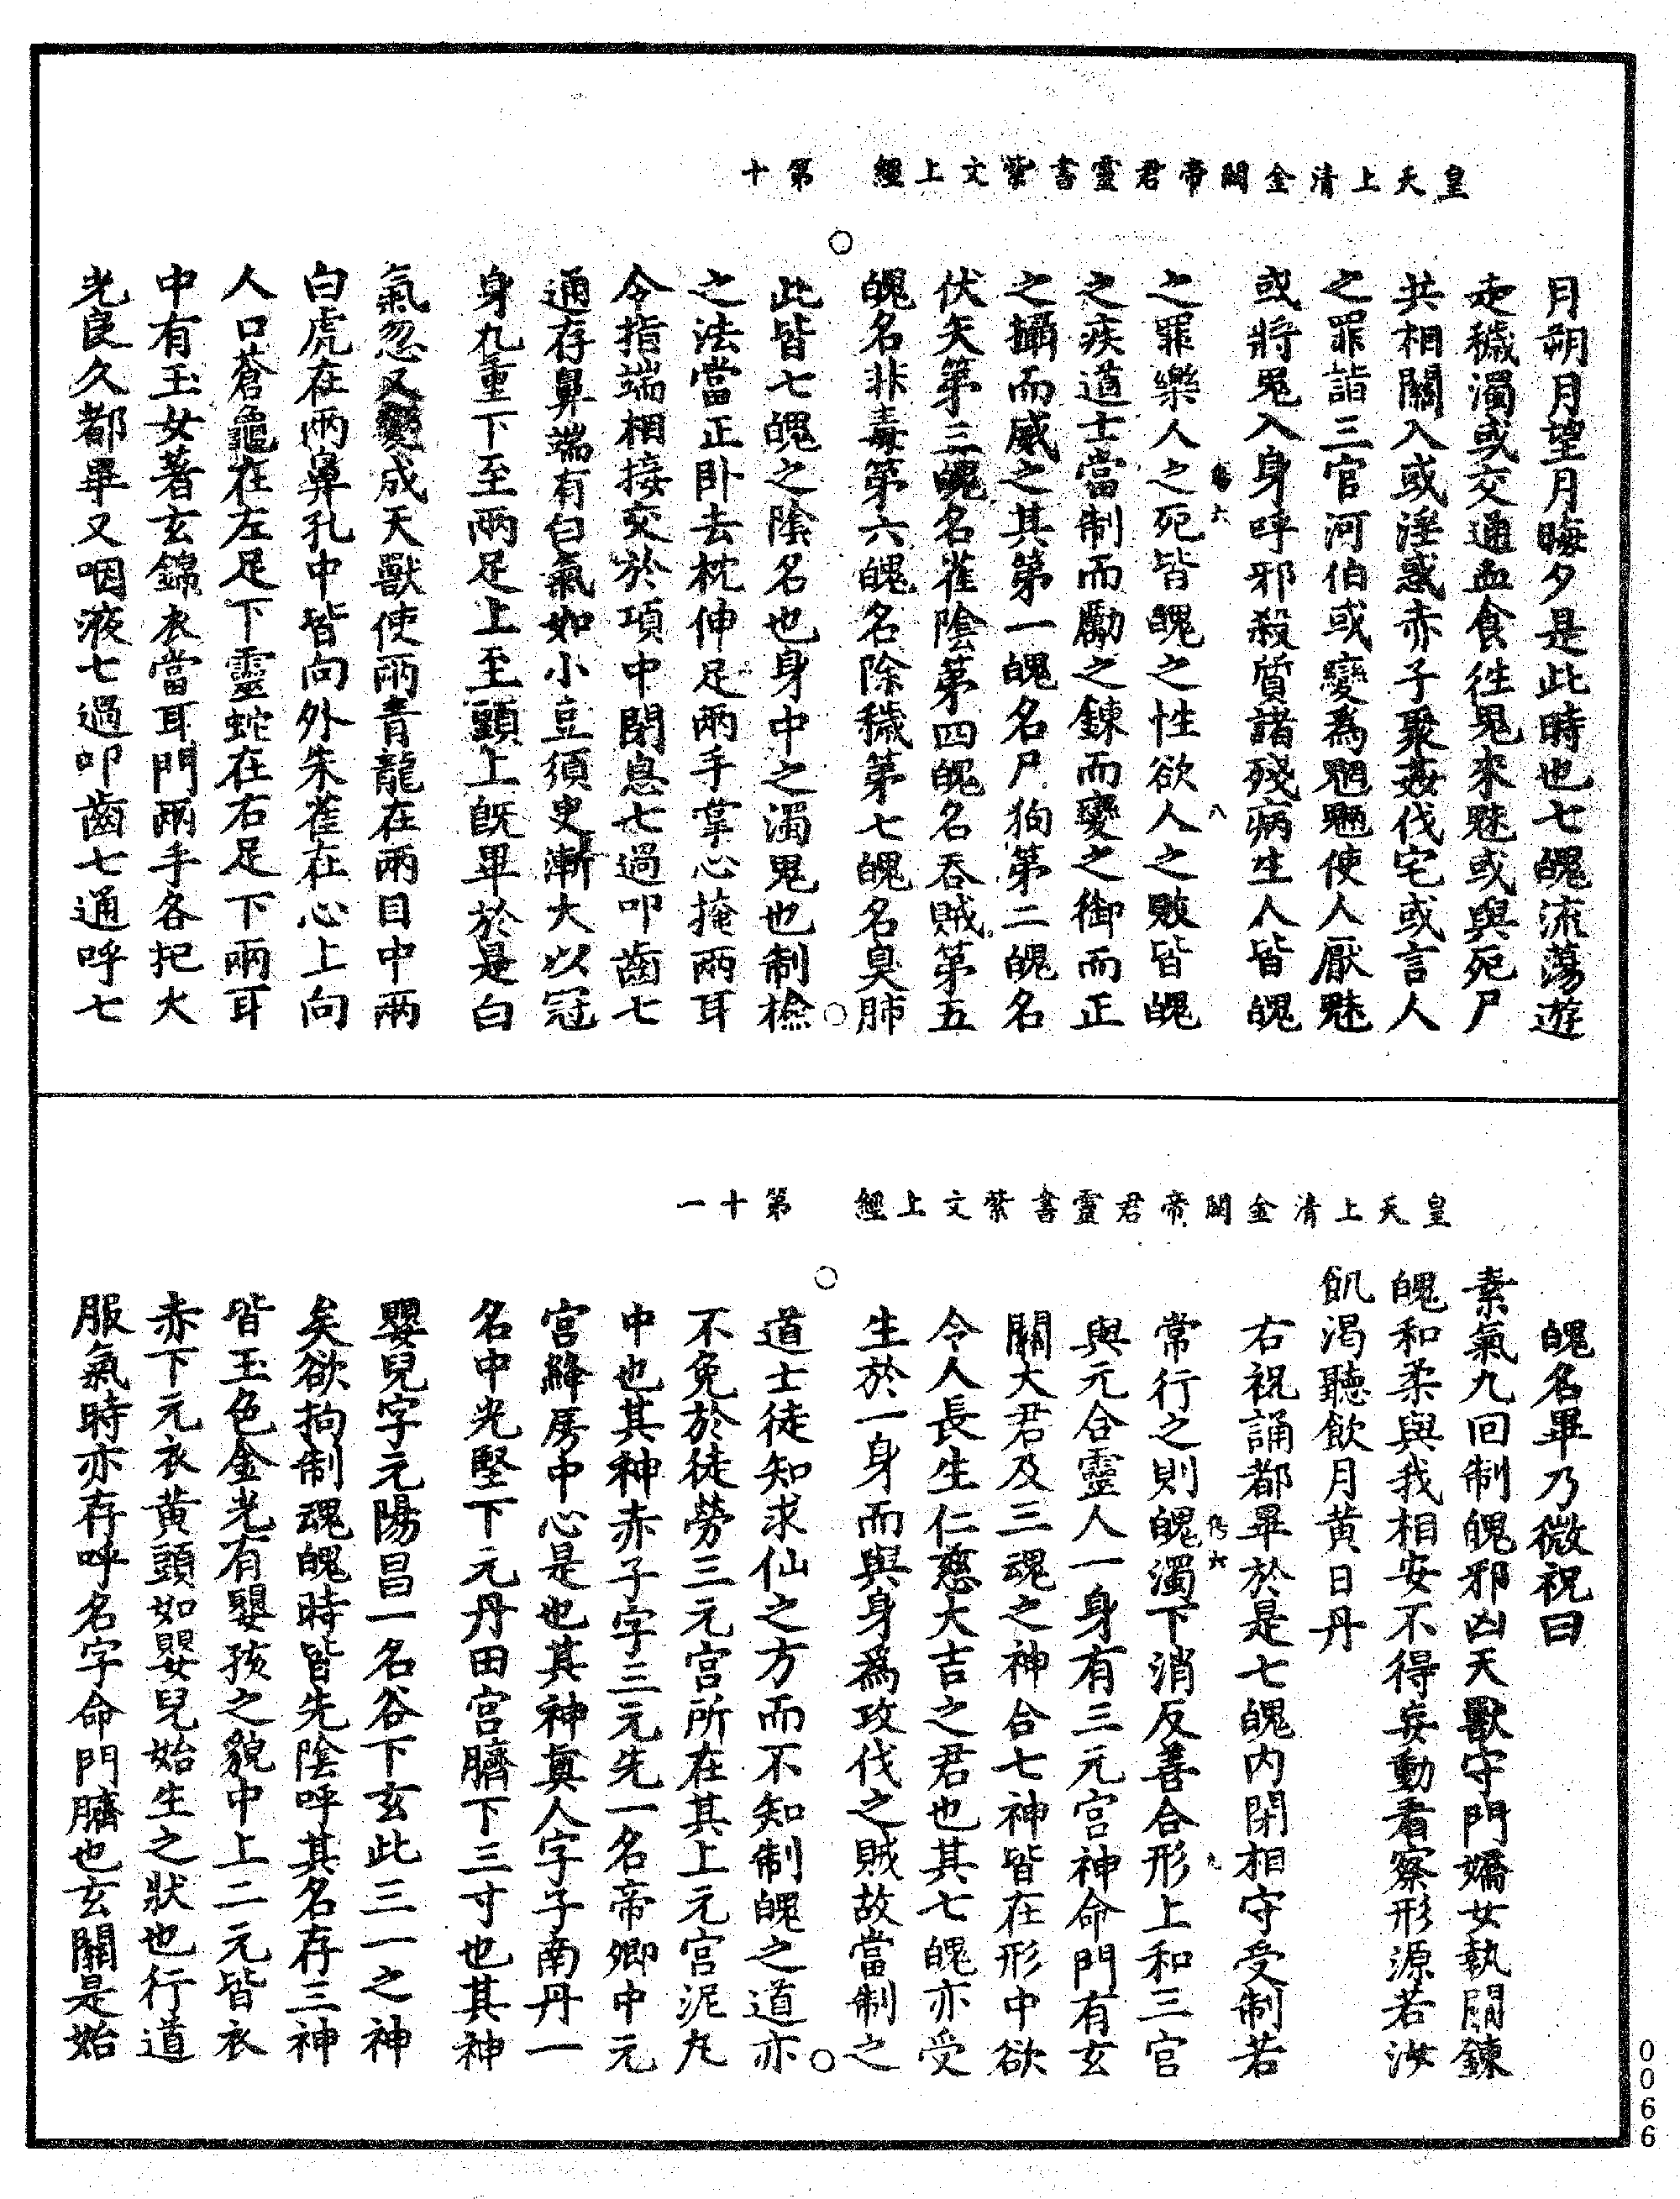 皇天上清金闕帝君靈書紫文上經 第十
月朔月望月晦夕是此時也七魄流蕩遊
走穢濁或交通血食往鬼來魅或與死尸
共相關入或淫惑赤子聚姦伐宅或言人
之罪詣三官河伯或變為魍魎使人厭魅
或將鬼入身呼邪殺質諸殘病生人皆魄
之罪樂人之死皆魄之性欲人之敗皆魄
之疾道士當制而勵之鍊而變之御而正
之攝而威之其第一魄名尸狗第二魄名
伏矢第三魄名雀陰第四魄名吞賊第五
魄名非毒第六魄名除穢第七魄名臭肺
此皆七魄之陰名也身中之濁鬼也制檢
之法當正卧去枕伸足兩手掌心掩兩耳
令指端相接交於項中閉息七過叩齒七
通存鼻端有白氣如小豆須臾漸大以冠
身九重下至兩足上至頭上既畢於是白
氣忽又變成天獸使兩青龍在兩目中兩
白虎在兩鼻孔中皆向外朱雀在心上向
人口蒼龜在左足下靈蛇在右足下兩耳
中有玉女著玄錦衣當耳門兩手各把火
光良久都畢又咽液七過叩齒七通呼七
皇天上清金闕帝君靈書紫文上經 第十一
魄名畢乃微祝曰
素氣九回制魄邪凶天獸守門嬌女執關鍊
魄和柔與我相安不得妄動看察形源若汝
飢渴聽飲月黄日丹
右祝誦都畢於是七魄内閉相守受制若
常行之則魄濁下消反善合形上和三官
與元合靈人一身有三元宫神命門有玄
關大君及三魂之神合七神皆在形中欲
令人長生仁慈大吉之君也其七魄亦受
生於一身而與身為攻伐之賊故當制之
道士徒知求仙之方而不知制魄之道亦
不免於徒勞三元宫所在其上元宫泥丸
中也其神赤子字三元先一名帝卿中元
宫絳房中心是也其神真人字子南丹一
名中光堅下元丹田宫臍下三寸也其神
嬰兒字元陽昌一名谷下玄此三一之神
矣欲拘制魂魄時皆先陰呼其名存三神
皆玉色金光有嬰孩之貌中上二元皆衣
赤下元衣黄頭如嬰兒始生之狀也行道
服氣時亦存呼名字命門臍也玄關是始
0066